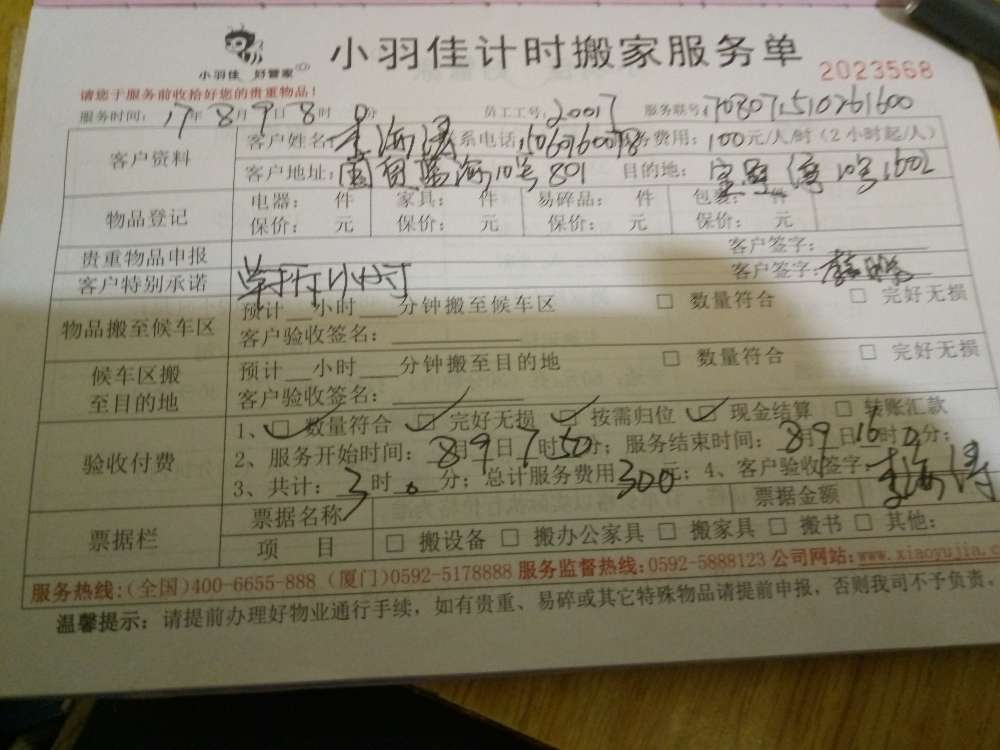 小羽佳 好管家
小羽佳计时搬家服务单
2023568
请您于服务前收拾好您的贵重物品!
服务时间: 17年8月9日8时0分 员工工号: 20017 服务联号:
客户资料
客户姓名: 李海涛 联系电话: 服务费用: 100元/人/时(2小时起/人)
客户地址: 10号801 目的地: 10号1602
物品登记
电器: 件 家具: 件 易碎品: 件 包裹: 件
保价: 元 保价: 元 保价: 元 保价: 元
贵重物品申报 客户签字:
客户特别承诺 客户签字:
物品搬至候车区
预计 小时 分钟搬至候车区 □ 数量符合 □ 完好无损
客户验收签名:
候车区搬至目的地
预计 小时 分钟搬至目的地 □ 数量符合 □ 完好无损
客户验收签名:
验收付费
1、☑ 数量符合 ☑ 完好无损 ☑ 按需归位 ☑ 现金结算 □ 转账汇款
2、服务开始时间: 8月9日7时50分; 服务结束时间: 8月9日16时0分;
3、共计: 3时0分; 总计服务费用300元; 4、客户验收签字: 李海涛
票据栏
票据名称 票据金额
项 目 □ 搬设备 □ 搬办公家具 □ 搬家具 □ 搬书 □ 其他:
服务热线:(全国)400-6655-888 (厦门)0592-5178888 服务监督热线:0592-5888123 公司网站:www.xiaoyujia.c
温馨提示: 请提前办理好物业通行手续,如有贵重、易碎或其它特殊物品请提前申报,否则我司不予负责。